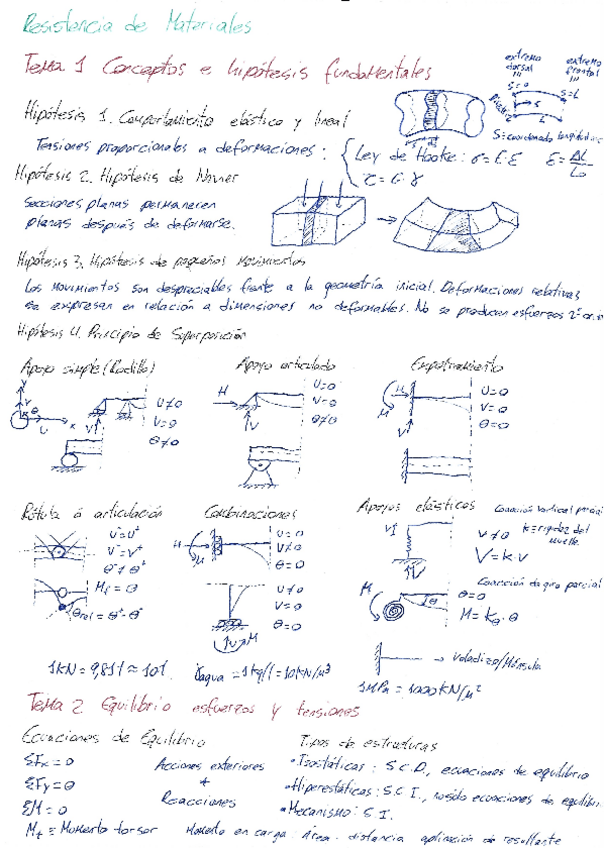 Resistencia de Materiales
Tema 1 Conceptos e hipótesis fundamentales
extremo dorsal
extremo frontal
S=0
S=L
S
L
S=coordenada longitudinal
Hipótesis 1. Comportamiento elástico y lineal
Tensiones proporcionales a deformaciones: { Ley de Hooke: σ=E·ε ε=ΔL/L₀
τ=G·γ
Hipótesis 2. Hipótesis de Navier
Secciones planas permanecen
planas después de deformarse.
Hipótesis 3. Hipótesis de pequeños movimientos
Los movimientos son despreciables frente a la geometría inicial. Deformaciones relativas
se expresan en relación a dimensiones no deformables. No se producen esfuerzos 2º
Hipótesis 4. Principio de Superposición
Apoyo simple (Rodillo)
Apoyo articulado
Empotramiento
U≠0
V=0
θ≠0
H
V
U=0
V=0
θ≠0
H
M
V
U=0
V=0
θ=0
Rótula ó articulación
Combinaciones
Apoyos elásticos
Conexión vertical parcial
U⁻=U⁺
V⁻=V⁺
θ⁻≠θ⁺
Mf=0
θrel=θ⁺-θ⁻
H
M
U=0
V≠0
θ=0
U≠0
V=0
θ=0
V
M
V≠0
k=rigidez del muelle
V=k·v
Conexión de giro parcial
M
θ
θ=0
M=kθ·θ
→ voladizo/Ménsula
1KN=9,81t≈10t.
γagua=1kg/l=10KN/m³
1MPa=1000KN/m²
Tema 2 Equilibrio esfuerzos y tensiones
Ecuaciones de Equilibrio
Tipos de estructuras
ΣFx=0
Acciones exteriores
•Isostáticas: S.C.D., ecuaciones de equilibrio
ΣFy=0
+
•Hiperestáticas: S.C.I., ecuaciones de
ΣM=0
Reacciones
•Mecanismo: S.I.
Mt≡Momento torsor
Momento en carga: Área · distancia aplicación de resultante